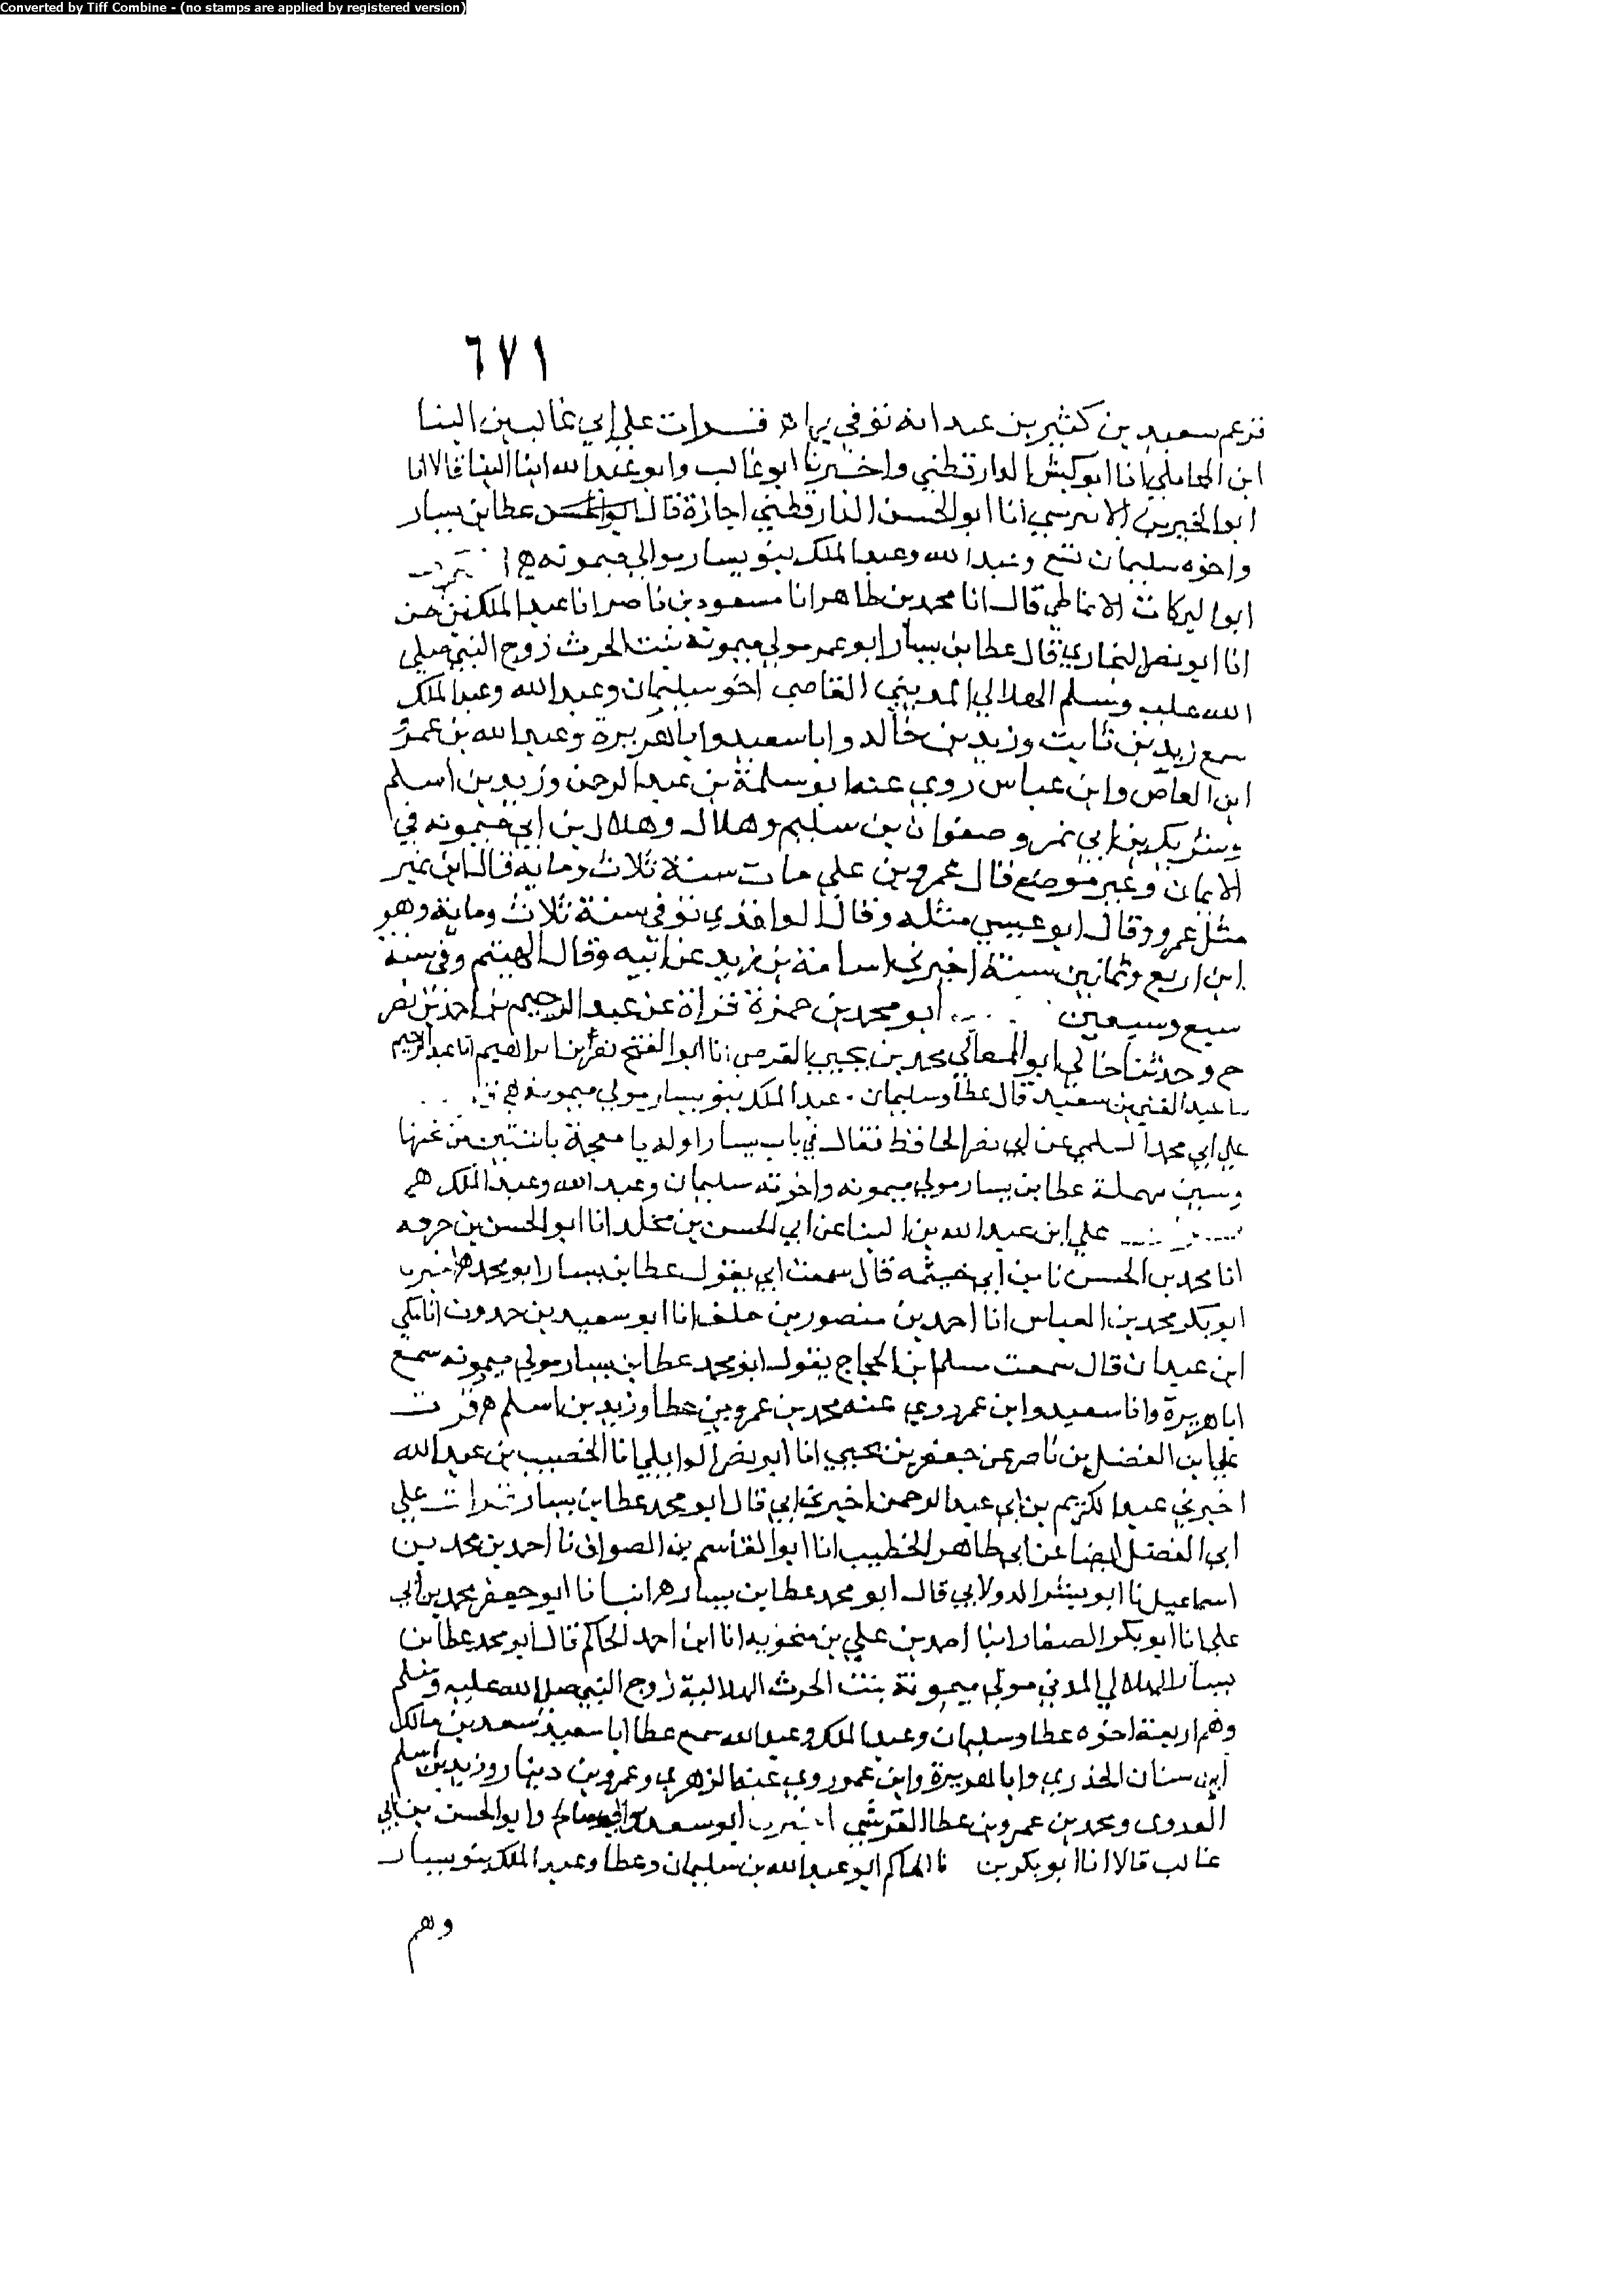 Converted by Tiff Combine - (no stamps are applied by registered version)
٦٧١
فزعم سعيد بن كثير بن عبد انه توفي بها قرات علي ابي غالب بن البنا
ابن المحاملي انا ابو الدارقطني واخبرنا ابو غالب وابو عبد الله ابنا البنا قالا انا
ابو الحسن الدارقطني اجازة قال عطا بن يسار
واخوه سليمان وعبد الله وعبد الملك بنو يسار موالي ميمونه
ابو البركات الانماطي قال انا محمد بن طاهر انا مسعود بن ناصر انا عبد الملك بن
انا ابو نصر البخاري قال عطا بن يسار ابو محمد مولي ميمونه بنت الحرث زوج النبي صلي
الله عليه وسلم الهلالي المديني القاضي اخو سليمان وعبد الله وعبد الملك
سمع زيد بن ثابت وزيد بن خالد وابا سعيد وابا هريرة وعبد الله بن عمرو
ابن العاص وابن عباس روي عنه ابو سلمة بن عبد الرحمن وزيد بن اسلم
وشريك بن ابي نمر وصفوان بن سليم وهلال وهلال بن ابي ميمونه في
الايمان وغير موضع قال عمرو بن علي مات سنة ثلاث ومايه قال ابن نمير
مثل عمرو وقال ابو عيسي مثله وقال الواقدي توفي سنة ثلاث ومايه وهو
ابن اربع وثمانين سنة اخبرني اسامة بن زيد عن ابيه وقال الهيثم وفي سنة
سبع وتسعين ابو محمد بن حمزة قراة عن عبد الرحيم بن احمد بن نصر
ح وحدثنا خالي ابو المعالي محمد بن يحيي القرضي انا ابو الفتح نصر بن ابراهيم انا عبد الرحيم
نا عبد الغني بن سعيد قال عطا وسليمان عبد الملك بنو يسار مولي ميمونه
علي ابي محمد السلمي عن ابي نصر الحافظ قال في باب يسار اوله يا معجمة باثنتين من تحتها
وسين مهملة عطا بن يسار مولي ميمونه واخوته سليمان وعبد الله وعبد الملك هم
علي ابن عبد الله بن البنا عن ابي الحسن بن مخلد انا ابو الحسن بن خزفه
انا محمد بن الحسن نا بن ابي خيثمه قال سمعت ابي يقول عطا بن يسار ابو محمد اخبرنا
ابو بكر محمد بن العباس انا احمد بن منصور بن خلف انا ابو سعيد بن حمدون انا مكي
ابن عبدان قال سمعت مسلم ابن الحجاج يقول ابو محمد عطا بن يسار مولي ميمونه سمع
ابا هريرة وابا سعيد وابن عمر روي عنه محمد بن عمرو بن عطا وزيد بن اسلم قرات
علي ابن الفضل بن ناصر عن جعفر بن يحيي انا ابو نصر الوايلي انا الخصيب بن عبد الله
اخبرني عبد الكريم بن ابي عبد الرحمن اخبرني ابي قال ابو محمد عطا بن يسار قرات علي
ابي الفضل ايضا عن ابي طاهر الخطيب انا ابو القاسم بن الصواف نا احمد بن محمد بن
اسماعيل نا ابو بشر الدولابي قال ابو محمد عطا بن يسار انبانا ابو جعفر محمد بن ابي
علي انا ابو بكر الصفار انبا احمد بن علي بن منجويه انا ابن احمد الحاكم قال ابو محمد عطا بن
يسار الهلالي المدني مولي ميمونة بنت الحرث الهلالية زوج النبي صلي الله عليه وسلم
وهم اربعة اخوه عطا وسليمان وعبد الملك وعبد الله سمع عطا ابا سعيد سعد بن مالك
ابن سنان الخدري وابا هريرة وابن عمر روي عنه الزهري وعمرو بن دينار وزيد بن اسلم
العدوي ومحمد بن عمرو بن عطا القرشي اخبرنا ابو سعد وابو الحسن بن ابي
غالب قالا انا ابو بكر بن نا الحاكم ابو عبد الله بن سليمان وعطا وعبد الملك بنو يسار
وهم